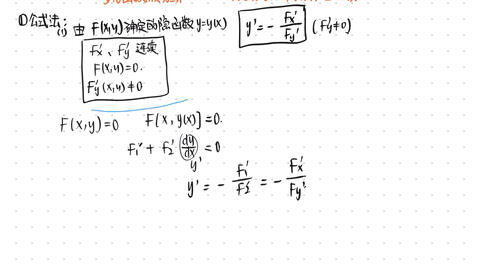 ①公式法:
(1) 由 F(x,y) 确定的隐函数 y=y(x) y' = - Fx' / Fy' (Fy'≠0)
Fx'、Fy' 连续
F(x,y)=0.
Fy'(x,y)≠0
F(x,y)=0 F[x, y(x)]=0.
F1' + F2' (dy/dx) = 0
y'
y' = - F1' / F2' = - Fx' / Fy'